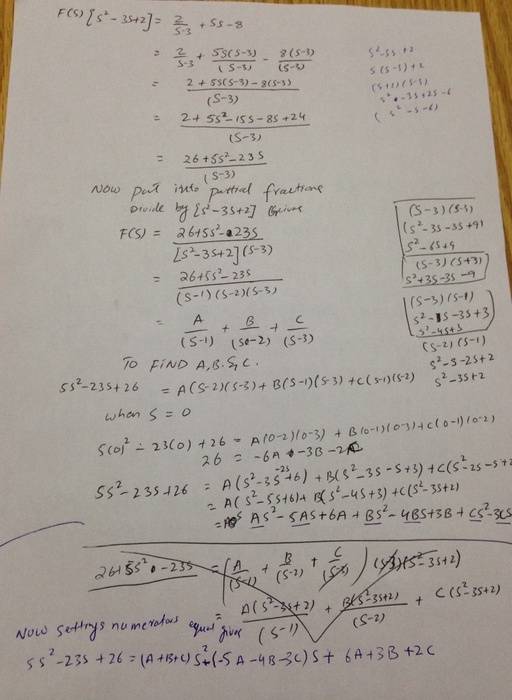 F(S) [S²-3S+2] = 2/(S-3) + 5S-8
= 2/(S-3) + 5S(S-3)/(S-3) - 8(S-3)/(S-3)
= 2+5S(S-3)-8(S-3)/(S-3)
= 2+5S²-15S-8S+24/(S-3)
= 26+5S²-23S/(S-3)
S(S-3)+2
(S+1)(S-3)
(S²-S-6)
NOW put into partial fractions
Divide by [S²-3S+2] gives
F(S) = 26+5S²-23S/[S²-3S+2](S-3)
= 26+5S²-23S/(S-1)(S-2)(S-3)
= A/(S-1) + B/(S-2) + C/(S-3)
(S-3)(S-3)
(S²-3S-3S+9)
S²-6S+9
(S-3)(S+3)
S²+3S-3S-9
(S-3)(S-1)
S²-1S-3S+3
S²-4S+3
(S-2)(S-1)
S²-S-2S+2
S²-3S+2
TO FIND A, B, & C.
5S²-23S+26 = A(S-2)(S-3)+B(S-1)(S-3)+C(S-1)(S-2)
when S = 0
5(0)²-23(0)+26 = A(0-2)(0-3)+B(0-1)(0-3)+C(0-1)(0-2)
26 = -6A-3B-2
5S²-23S+26 = A(S²-3S-2S+6)+B(S²-3S-S+3)+C(S²-2S-S+2
= A(S²-5S+6)+B(S²-4S+3)+C(S²-3S+2)
= AS²-5AS+6A+BS²-4BS+3B+CS²-3CS
26+5S²-23S = (A/(S-1) + B/(S-2) + C/(S-3)) (S-3)(S²-3S+2)
= A(S²-3S+2)/(S-1) + B(S²-3S+2)/(S-2) + C(S²-3S+2)
Now settings numerators equal gives
5S²-23S+26 = (A+B+C)S²+(-5A-4B-3C)S+6A+3B+2C